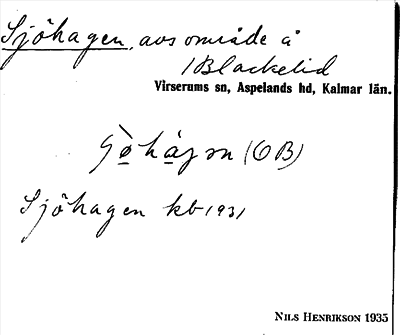 Sjöhagen, avs område å
/Blackelid
Virserums sn, Aspelands hd, Kalmar län.
(OB)
Sjöhagen kb 1931
NILS HENRIKSON 1935